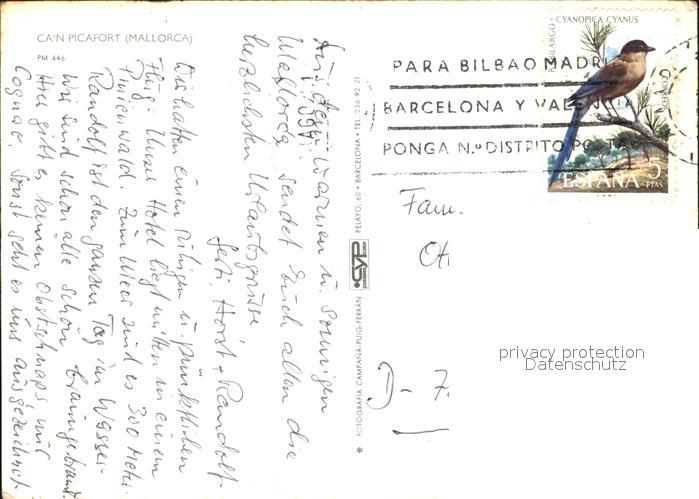 CA'N PICAFORT (MALLORCA)
PM 446
Aus dem warmen u. sonnigen
Mallorca sendet Euch allen die
herzlichsten Urlaubsgrüsse
Gerti, Horst + Randolf
Wir hatten einen ruhigen u. pünktlichen
Flug. Unser Hotel liegt mitten in einem
Pinienwald. Zum Meer sind es 300 Meter.
Randolf ist den ganzen Tag im Wasser.
Wir sind schon alle schön braungebrannt.
Hier gibt es keinen Obstschnaps nur
Cognac. Sonst geht es uns ausgezeichnet.
FOTOGRAFIA CAMPAÑÁ-PUIG-FERRÁN
CYP
PELAYO, 60 • BARCELONA • TEL. 236 92 21
PARA BILBAO MADRI
BARCELONA Y VALENCIA
PONGA N.º DISTRITO POSTAL
CYANOPICA CYANUS
RABILARGO
CORREOS
ESPAÑA 5 PTAS
Fam.
Ot
D-7.
privacy protection
Datenschutz